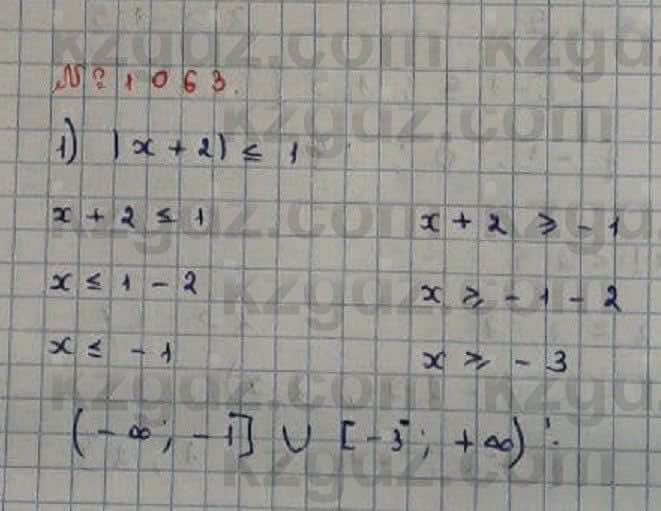 № 1063.
1) |x + 2| ≤ 1
x + 2 ≤ 1 x + 2 ≥ - 1
x ≤ 1 - 2 x ≥ - 1 - 2
x ≤ - 1 x ≥ - 3
(- ∞; - 1] ∪ [- 3; + ∞)
kzgdz.com